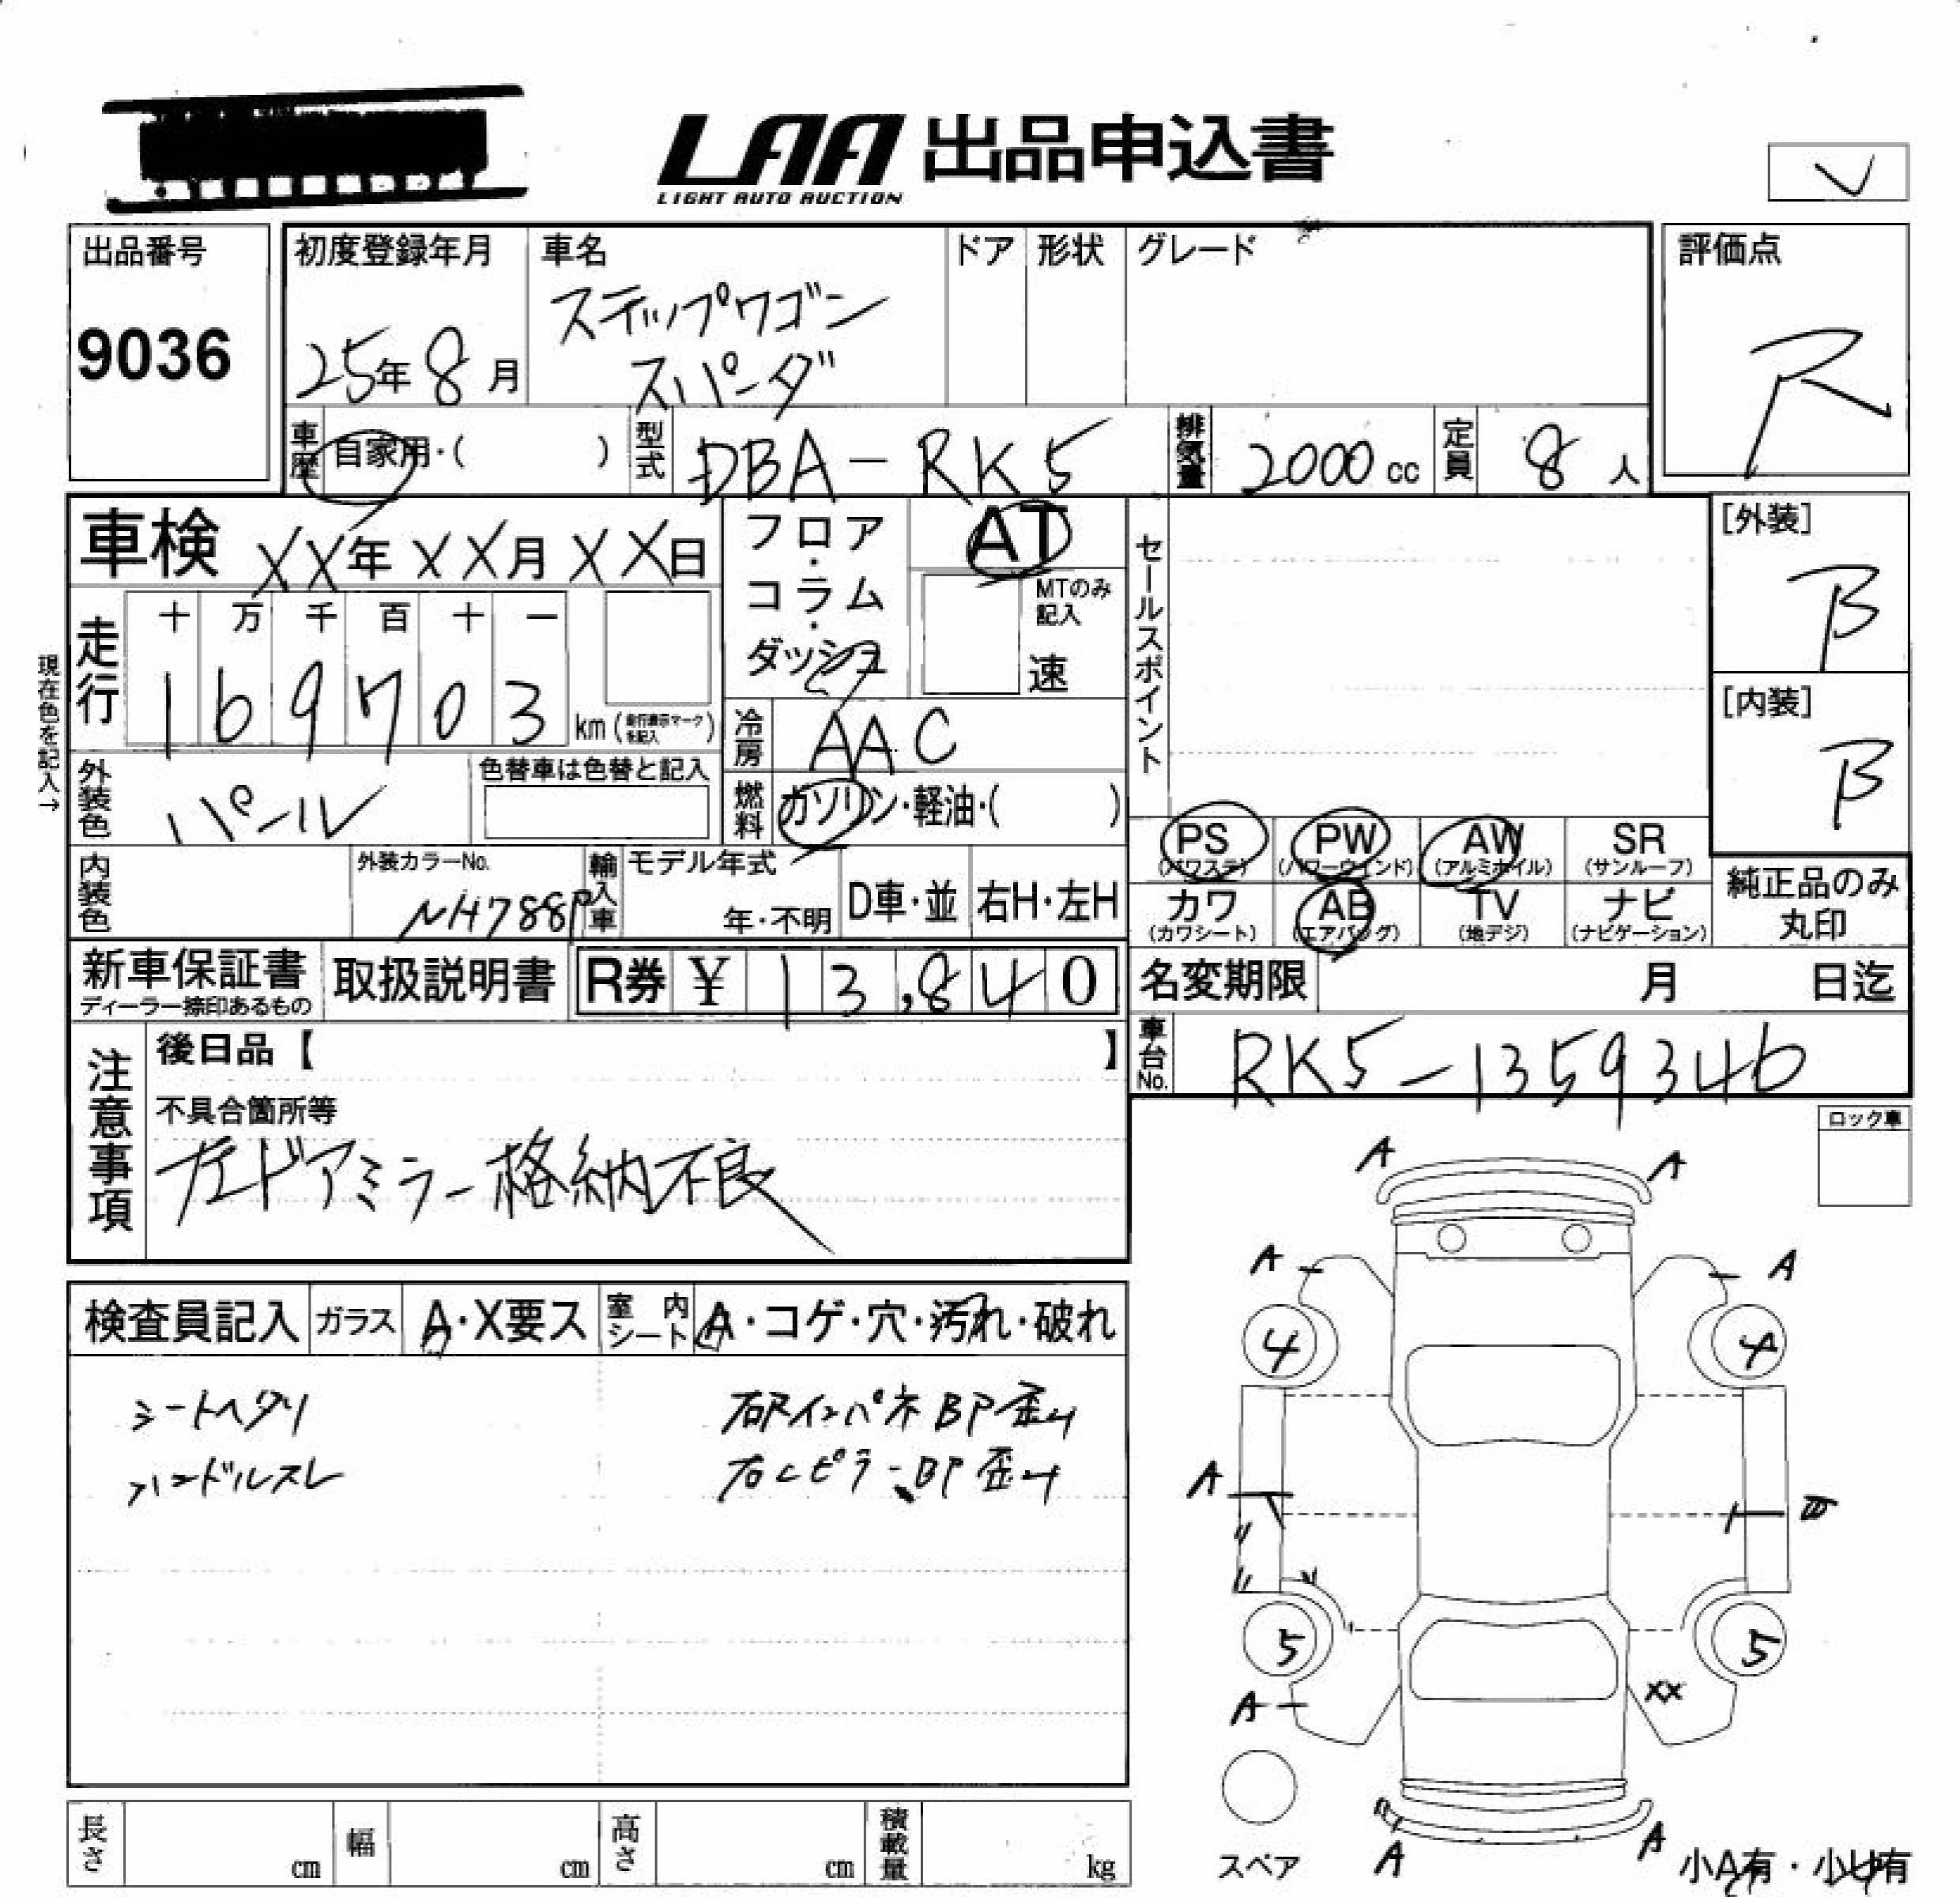 LAA 出品申込書
LIGHT AUTO AUCTION
出品番号
9036
初度登録年月
25年 8月
車名
ステップワゴン
スパーダ
ドア
形状
グレード
評価点
R
車歴
自家用・( )
型式
DBA-RK5
排気量
2000 cc
定員
8 人
車検 XX年 XX月 XX日
フロア・コラム・ダッシュ
AT
MTのみ記入
速
セールスポイント
[外装]
B
[内装]
B
現在色を記入→
走行
十 万 千 百 十 一
1 6 9 7 0 3 km (走行表示マークを記入)
冷房
AAC
外装色
パール
色替車は色替と記入
燃料
ガソリン・軽油・( )
PS (パワステ)
PW (パワーウィンド)
AW (アルミホイル)
SR (サンルーフ)
カワ (カワシート)
AB (エアバッグ)
TV (地デジ)
ナビ (ナビゲーション)
純正品のみ丸印
内装色
外装カラーNo.
NH788P
輸入車
モデル年式
年・不明
D車・並
右H・左H
新車保証書
ディーラー捺印あるもの
取扱説明書
R券 ¥ 13,840
名変期限 月 日迄
車台No.
RK5-1359346
注意事項
後日品【 】
不具合箇所等
左ドアミラー格納不良
ロック車
検査員記入
ガラス
A・X要ス
室内シート
A・コゲ・穴・汚れ・破れ
シートヘタリ
ハンドルスレ
右Rインパネ BP歪み
右Cピラー BP歪み
A A
A A
4 4
A
5 5
A XX
A A
スペア
小A有・小U有
長さ cm
幅 cm
高さ cm
積載量 kg